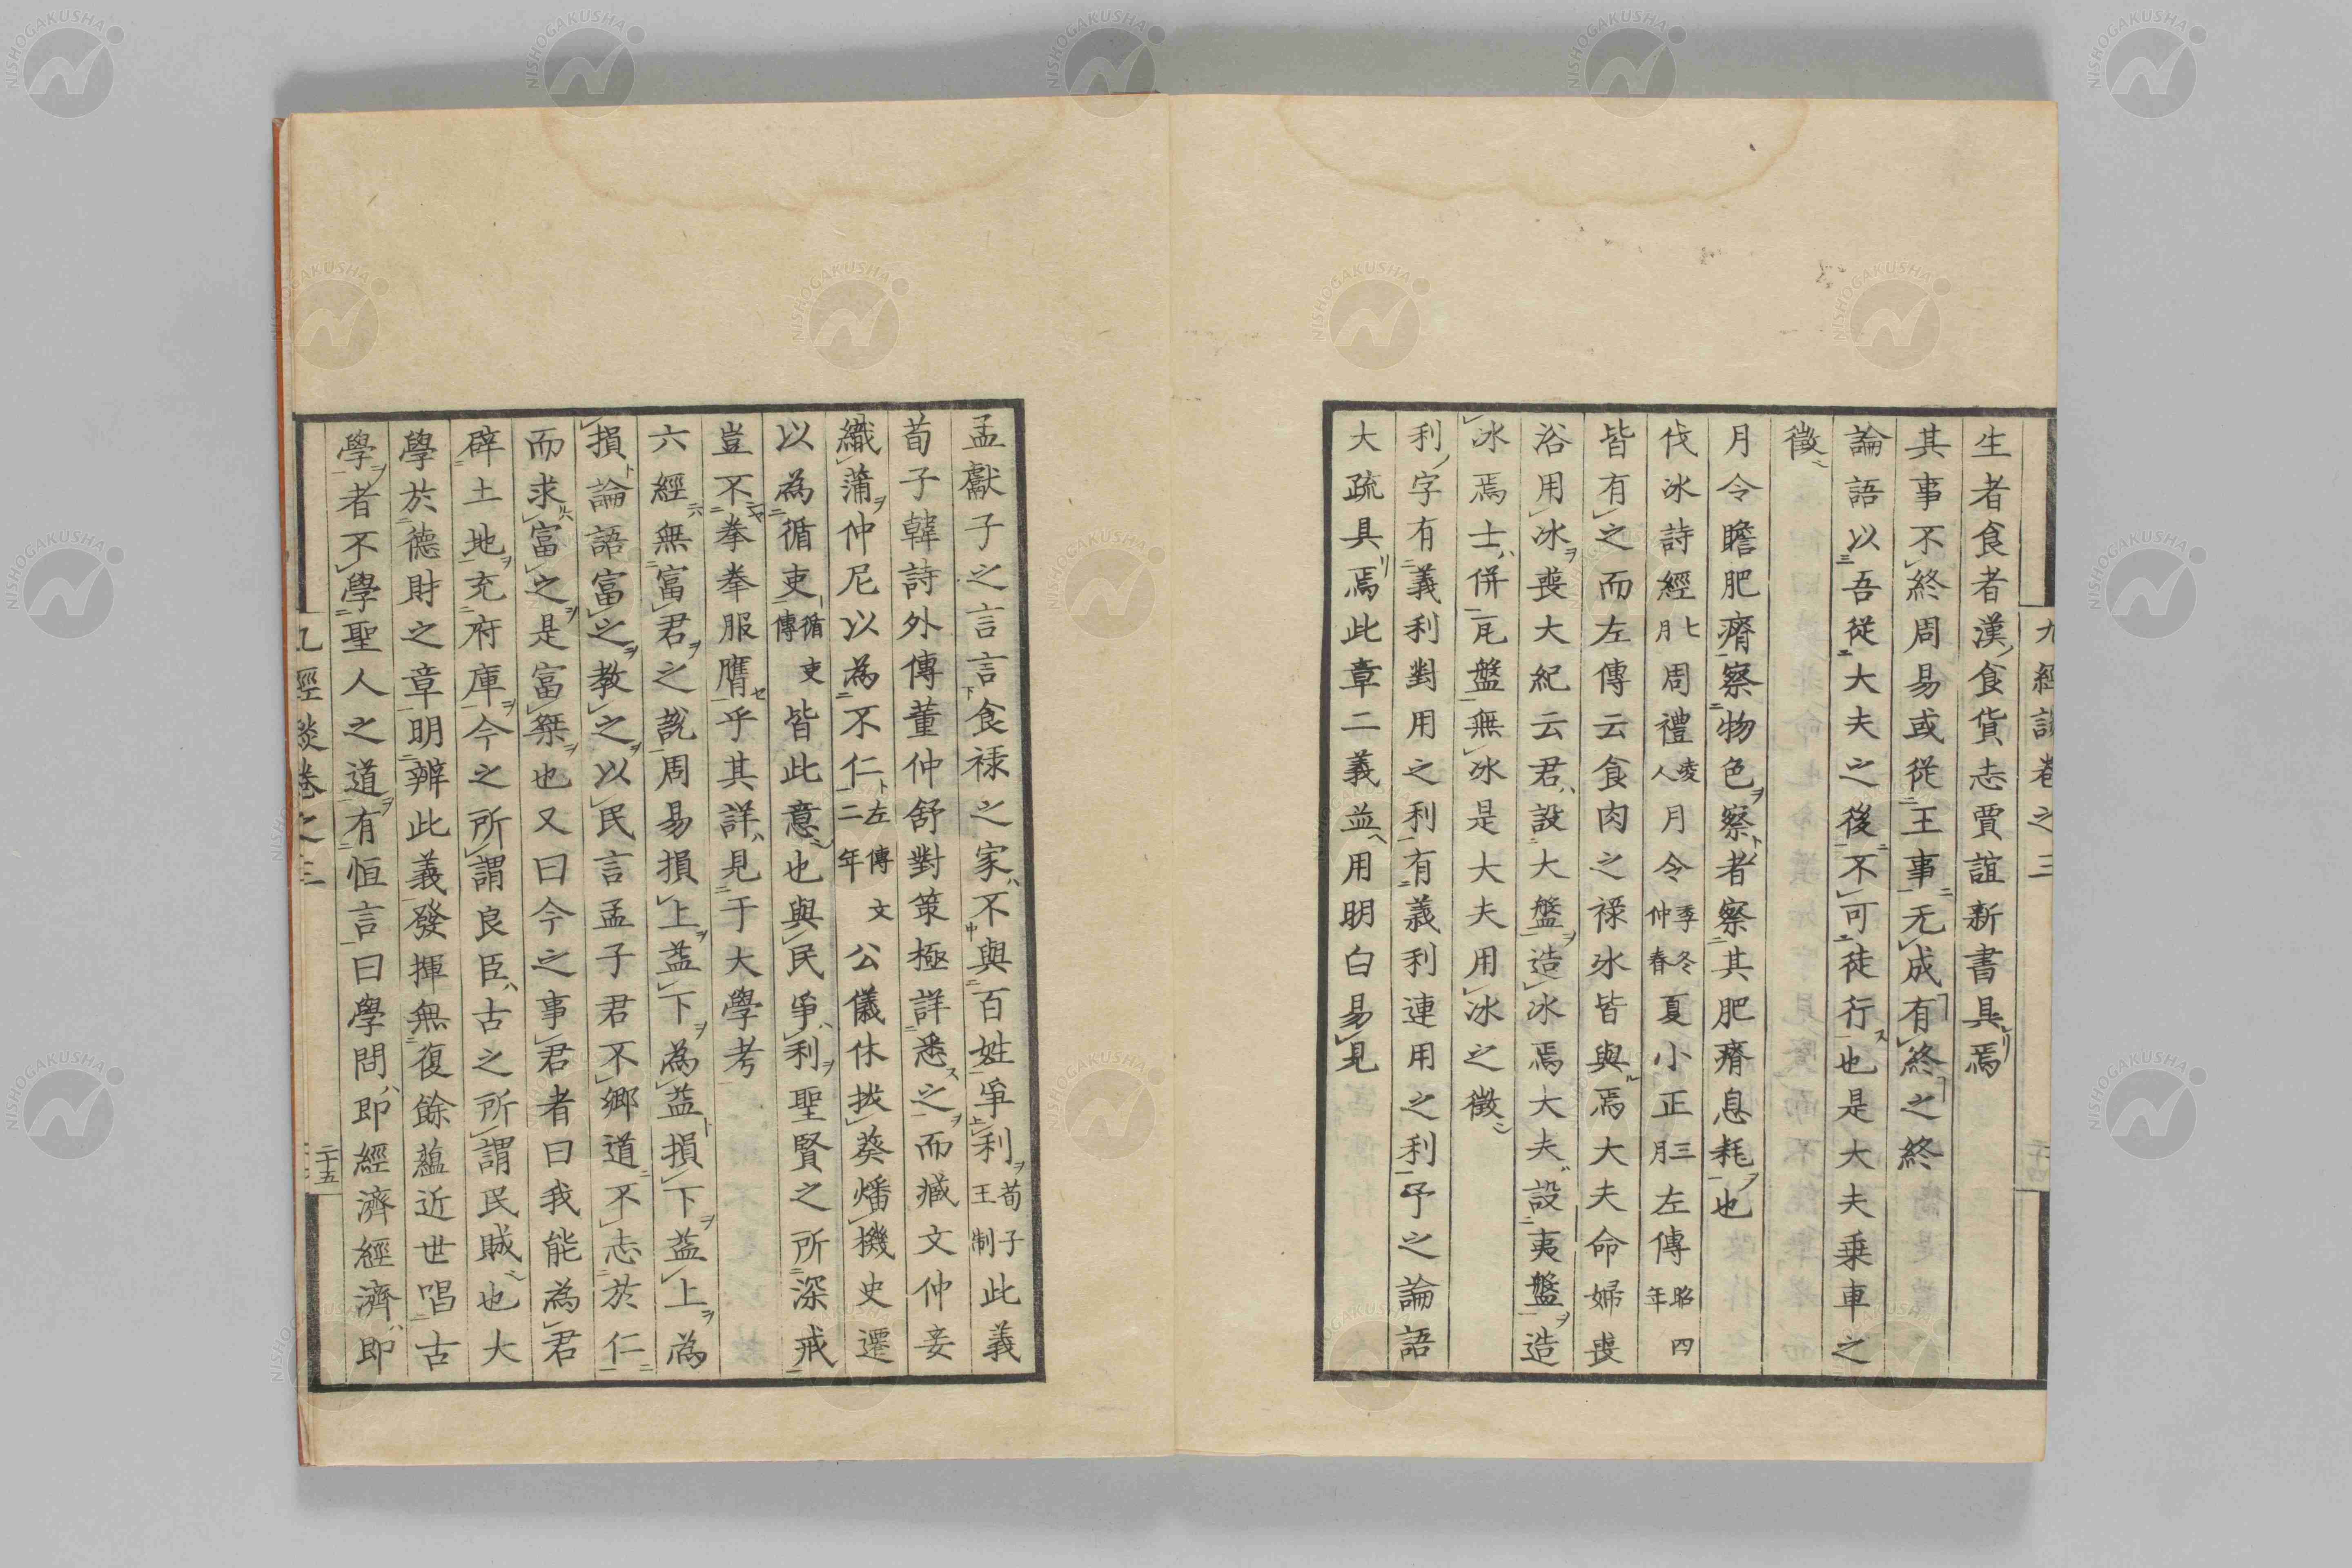 九經談卷之三
生者食者漢食貨志賈誼新書具焉
其事不終周易或從王事无成有終之終
論語以吾從大夫之後不可徒行也是大夫乗車之
徵
月令瞻肥瘠察物色察者察其肥瘠息耗也
伐冰詩經七月周禮凌人月令季冬仲春夏小正三月左傳昭四年
皆有之而左傳云食肉之禄冰皆與焉大夫命婦喪
浴用冰喪大紀云君設大盤造冰焉大夫設夷盤造
冰焉士併瓦盤無冰是大夫用冰之徵
利字有義利對用之利有義利連用之利予之論語
大疏具焉此章二義並用明白易見
孟獻子之言言食禄之家不與百姓爭利荀子王制此義
荀子韓詩外傳董仲舒對策極詳悉之而臧文仲妾
織蒲仲尼以為不仁左傳文二年公儀休拔葵燔機史遷
以為循吏循吏傳皆此意也與民爭利聖賢之所深戒
豈不拳拳服膺乎其詳見于大學考
六經無富君之説周易損上益下為益損下益上為
損論語富之教之以民言孟子君不鄉道不志於仁
而求富之是富桀也又曰今之事君者曰我能為君
辟土地充府庫今之所謂良臣古之所謂民賊也大
學於德財之章明辨此義發揮無復餘蘊近世唱古
學者不學聖人之道有恒言曰學問即經濟經濟即
九經談卷之三
二十五
NISHOGAKUSHA